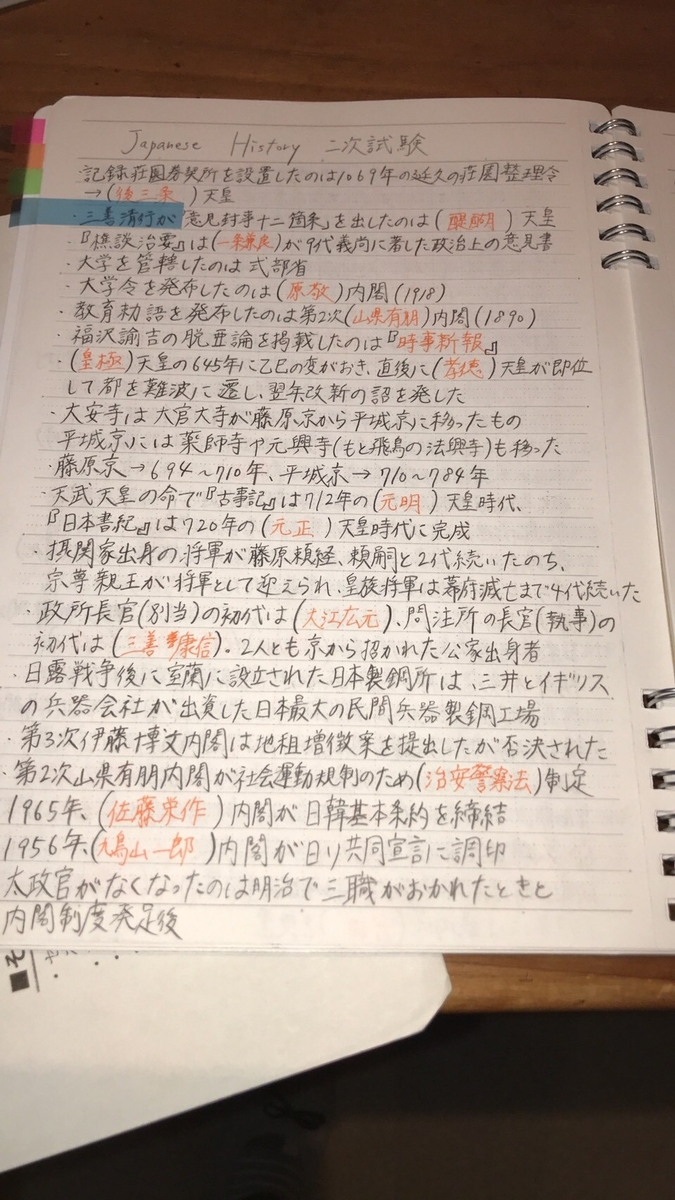 Japanese History 二次試験
・記録荘園券契所を設置したのは1069年の延久の荘園整理令
→(後三条)天皇
・三善清行が「意見封事十二箇条」を出したのは(醍醐)天皇
・『樵談治要』は(一条兼良)が9代義尚に著した政治上の意見書
・大学を管轄したのは式部省
・大学令を発布したのは(原敬)内閣(1918)
・教育勅語を発布したのは第2次(山県有朋)内閣(1890)
・福沢諭吉の脱亜論を掲載したのは『時事新報』
・(皇極)天皇の645年に乙巳の変がおき、直後に(孝徳)天皇が即位
して都を難波に遷し、翌年改新の詔を発した
・大安寺は大官大寺が藤原京から平城京に移ったもの
平城京には薬師寺や元興寺(もと飛鳥の法興寺)も移った
・藤原京→694〜710年、平城京→710〜784年
・天武天皇の命で『古事記』は712年の(元明)天皇時代、
『日本書紀』は720年の(元正)天皇時代に完成
・摂関家出身の将軍が藤原頼経、頼嗣と2代続いたのち、
宗尊親王が将軍として迎えられ、皇族将軍は幕府滅亡まで4代続いた
・政所長官(別当)の初代は(大江広元)、問注所の長官(執事)の
初代は(三善康信)。2人とも京から招かれた公家出身者
・日露戦争後に室蘭に設立された日本製鋼所は、三井とイギリス
の兵器会社が出資した日本最大の民間兵器製鋼工場
・第3次伊藤博文内閣は地租増徴案を提出したが否決された
・第2次山県有朋内閣が社会運動規制のため(治安警察法)制定
1965年、(佐藤栄作)内閣が日韓基本条約を締結
1956年、(鳩山一郎)内閣が日ソ共同宣言に調印
太政官がなくなったのは明治で三職がおかれたときと
内閣制度発足後
■そ